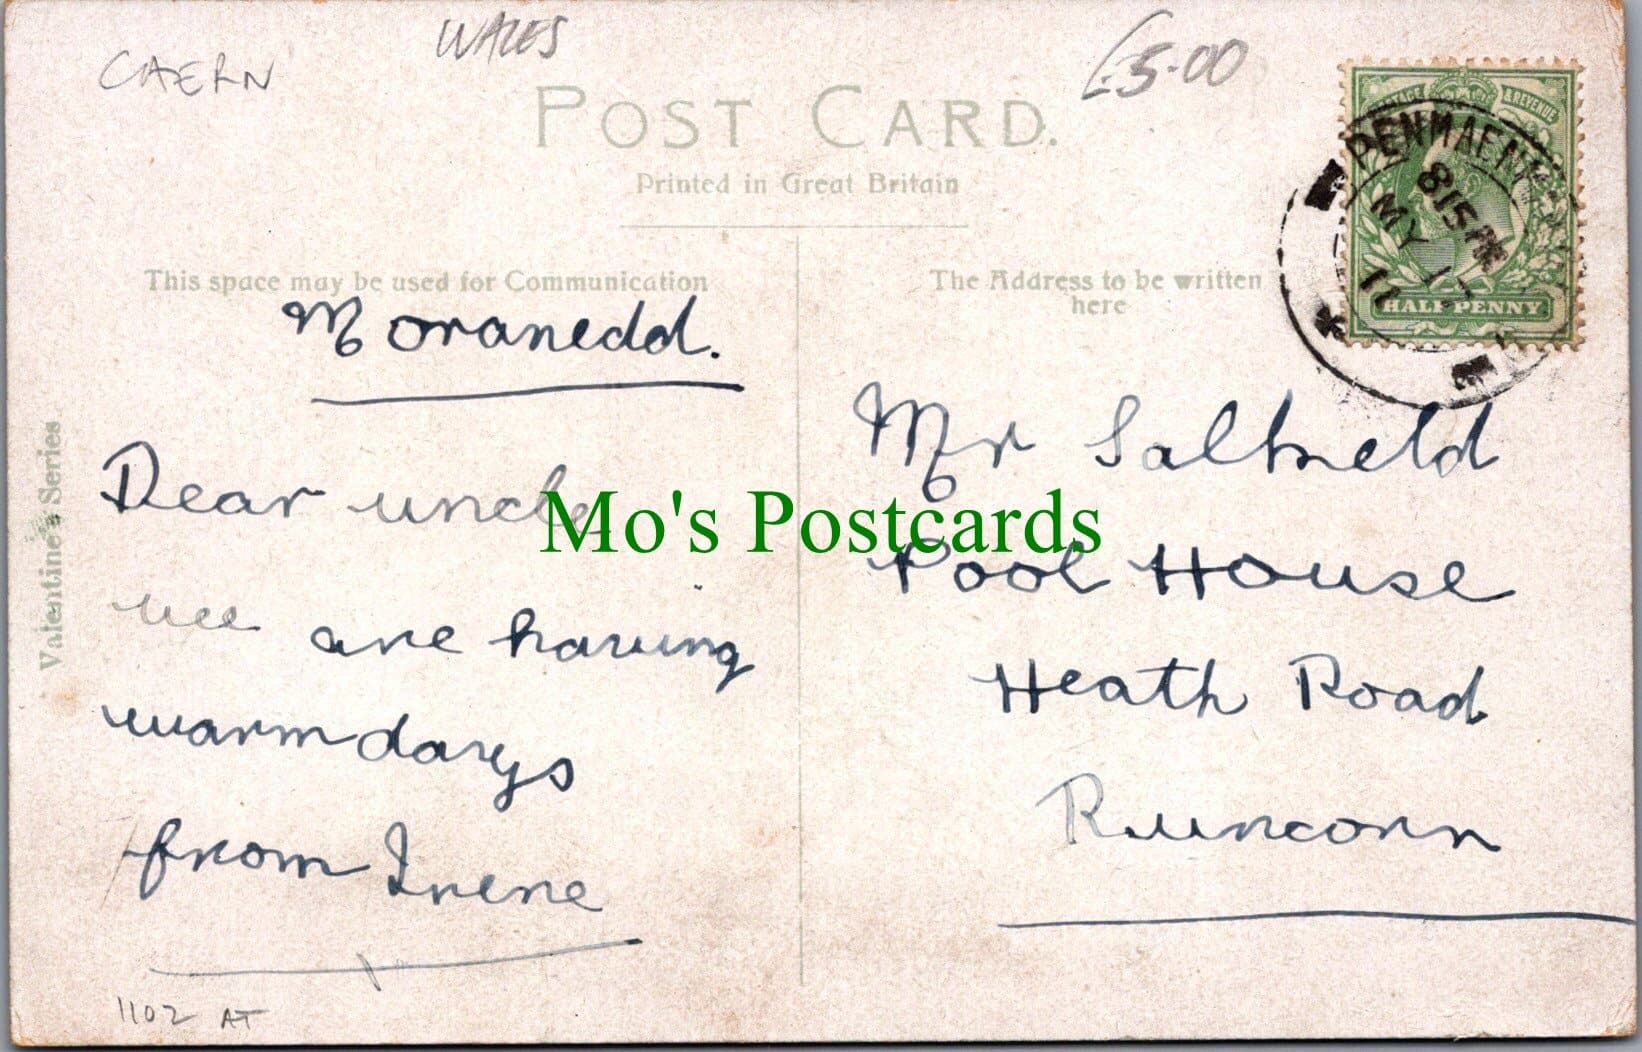 CAERN
WALES
£5.00
POST CARD.
Printed in Great Britain
This space may be used for Communication
The Address to be written
here
Valentine's Series
POSTAGE & REVENUE
HALFPENNY
PENMAENMAWR
815 PM
MY 17
11
Moranedd.
Dear uncle
we are having
warm days
from Irene
Mr Salkield
Pool House
Heath Road
Runcorn
Mo's Postcards
1102 AT